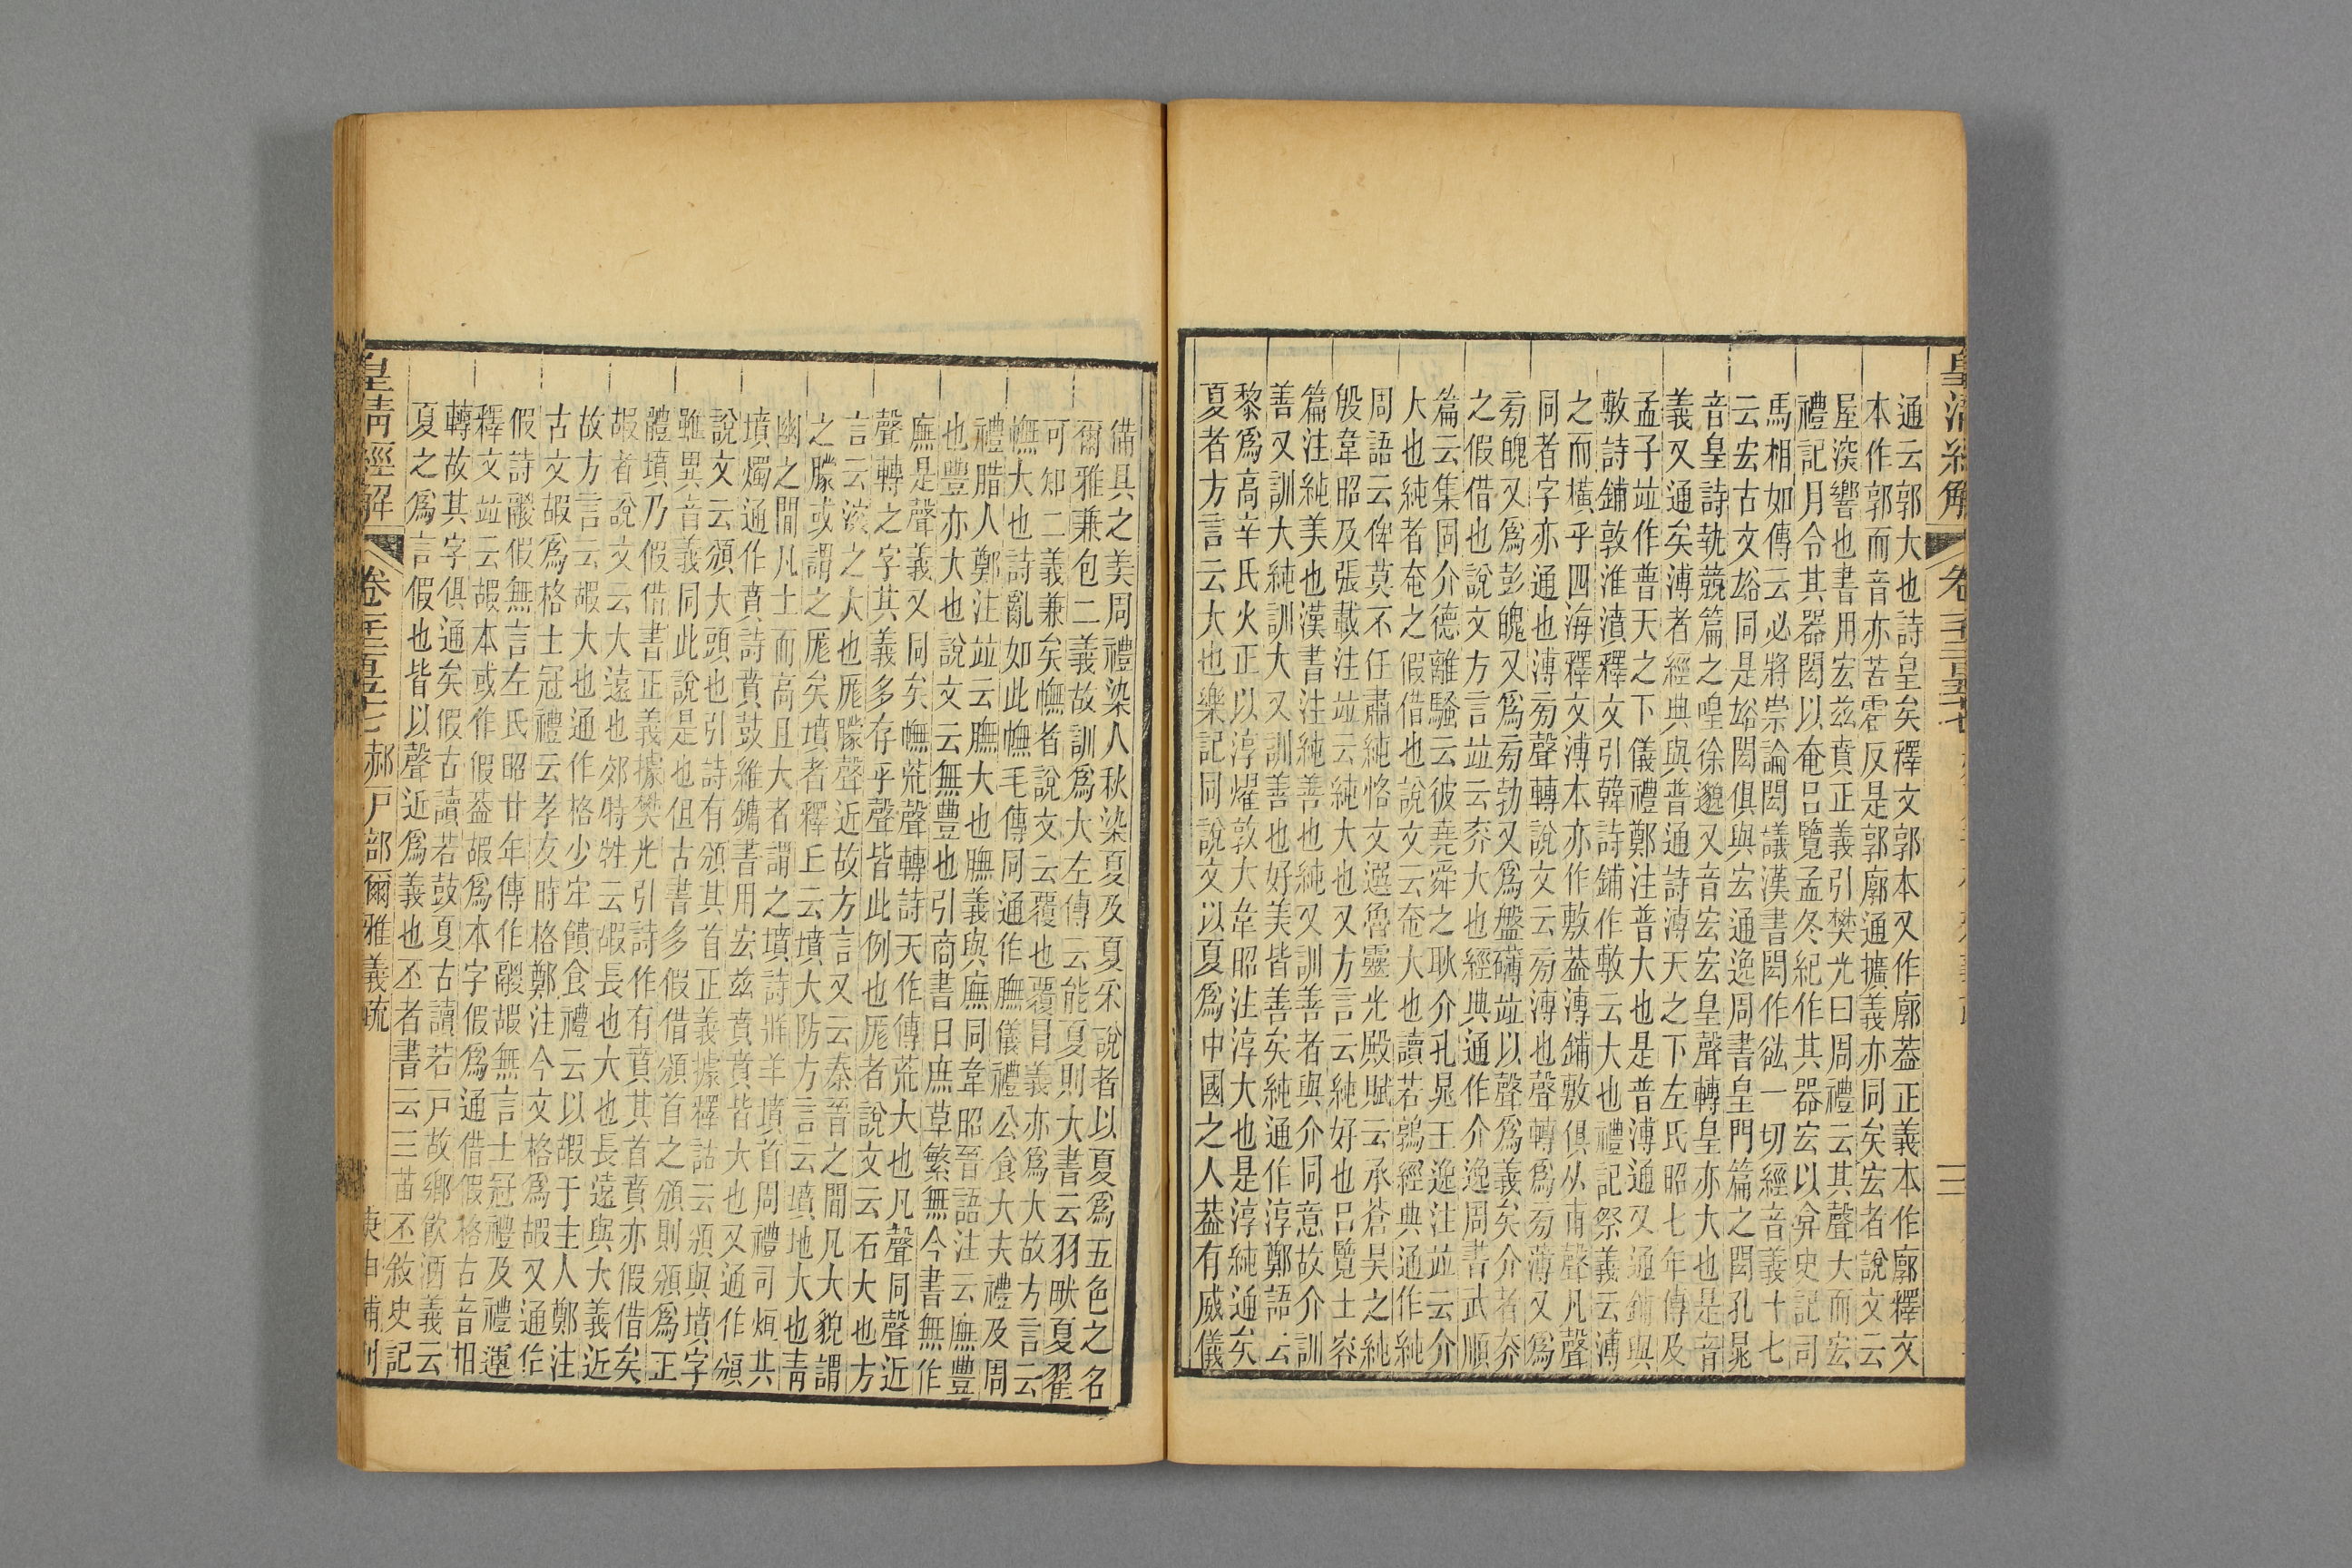 通云郭大也詩皇矣釋文郭本又作廓葢正義本作廓釋文
本作郭而音亦苦霍反是郭廓通擴義亦同矣宏者說文云
屋深響也書用宏茲賁正義引樊光曰周禮云其聲大而宏
禮記月令其器閎以奄呂覽孟冬紀作其器宏以弇史記司
馬相如傳云必將崇論閎議漢書閎作谹一切經音義十七
云宏古文谹同是谹閎俱與宏通逸周書皇門篇之閎孔晁
音皇詩執競篇之喤徐邈又音宏宏皇聲轉皇亦大也是音
義又通矣溥者經典與普通詩溥天之下左氏昭七年傳及
孟子竝作普天之下儀禮鄭注普大也是普溥通又通鋪與
敷詩鋪敦淮濆釋文引韓詩鋪作敷云大也禮記祭義云溥
之而橫乎四海釋文溥本亦作敷葢溥鋪敷俱从甫聲凡聲
同者字亦通也溥旁聲轉說文云旁溥也聲轉爲旁薄又爲
旁魄又爲彭魄又爲旁勃又爲盤礴竝以聲爲義矣介者夰
之假借也說文方言竝云夰大也經典通作介逸周書武順
篇云集固介德離騷云彼堯舜之耿介孔晁王逸注竝云介
大也純者奄之假借也說文云奄大也讀若鶉經典通作純
周語云俾莫不任肅純恪文選魯靈光殿賦云承蒼昊之純
殷韋昭及張載注竝云純大也又方言云純好也呂覽士容
篇注純美也漢書注純善也純又訓善者與介同意故介訓
善又訓大純訓大又訓善也好美皆善矣純通作淳鄭語云
黎爲高辛氏火正以淳燿敦大韋昭注淳大也是淳純通矣
夏者方言云大也樂記同說文以夏爲中國之人葢有威儀
備具之美周禮染人秋染夏及夏采說者以夏爲五色之名
爾雅兼包二義故訓爲大左傳云能夏則大書云羽畎夏翟
可知二義兼矣幠者說文云覆也覆冒義亦爲大故方言云
幠大也詩亂如此幠毛傳同通作膴儀禮公食大夫禮及周
禮腊人鄭注竝云膴大也膴義與廡同韋昭晉語注云廡豐
也豐亦大也說文云無豐也引商書曰庶草繁無今書無作
廡是聲義又同矣幠荒聲轉詩天作傳荒大也凡聲同聲近
聲轉之字其義多存乎聲皆此例也厖者說文云石大也方
言云濛之大也厖朦聲近故方言又云秦晉之閒凡大貌謂
之朦或謂之厖矣墳者釋丘云墳大防方言云墳地大也靑
幽之閒凡土而高且大者謂之墳詩牂羊墳首周禮司烜共
墳燭通作蕡詩賁鼓維鏞書用宏茲賁賁皆大也又通作頒
說文云頒大頭也引詩有頒其首正義據釋詁云頒與墳字
雖異音義同此說是也但古書多假借頒首之頒則頒爲正
體墳乃假借書正義據樊光引詩作有賁其首賁亦假借矣
嘏者說文云大遠也郊特牲云嘏長也大也長遠與大義近
故方言云嘏大也通作格少牢饋食禮云以嘏于主人鄭注
古文嘏爲格士冠禮云孝友時格鄭注今文格爲嘏又通作
假詩鬷假無言左氏昭廿年傳作鬷嘏無言士冠禮及禮運
釋文竝云嘏本或作假葢嘏爲本字假爲通借假格古音相
轉故其字俱通矣假古讀若鼓夏古讀若戸故鄉飮酒義云
夏之爲言假也皆以聲近爲義也丕者書云三苗丕敘史記
皇淸經解 卷千二百五十七 郝戸部爾雅義疏 庚申補刊